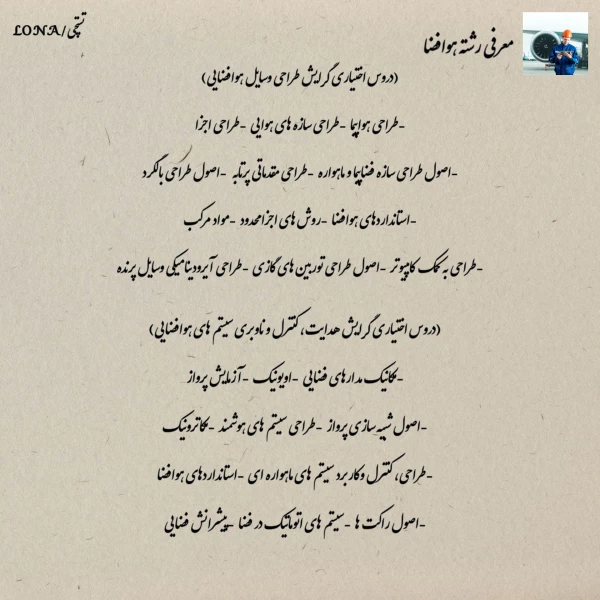 تستچی/LONA
معرفی رشته هوافضا
(دروس اختیاری گرایش طراحی وسایل هوافضایی)
-طراحی هواپیما -طراحی سازه های هوایی -طراحی اجزا
-اصول طراحی سازه فضاپیما و ماهواره -طراحی مقدماتی پرتابه -اصول طراحی بالگرد
-استانداردهای هوافضا -روش های اجزا محدود -مواد مرکب
-طراحی به کمک کامپیوتر -اصول طراحی توربین های گازی -طراحی آیرودینامیکی وسایل پرنده
(دروس اختیاری گرایش هدایت، کنترل و ناوبری سیستم های هوافضایی)
-مکانیک مدارهای فضایی -اویونیک -آزمایش پرواز
-اصول شبیه سازی پرواز -طراحی سیستم های هوشمند -مکاترونیک
-طراحی، کنترل و کاربرد سیستم های ماهواره ای -استانداردهای هوافضا
-اصول راکت ها -سیستم های اتوماتیک در فضا -پیشرانش فضایی